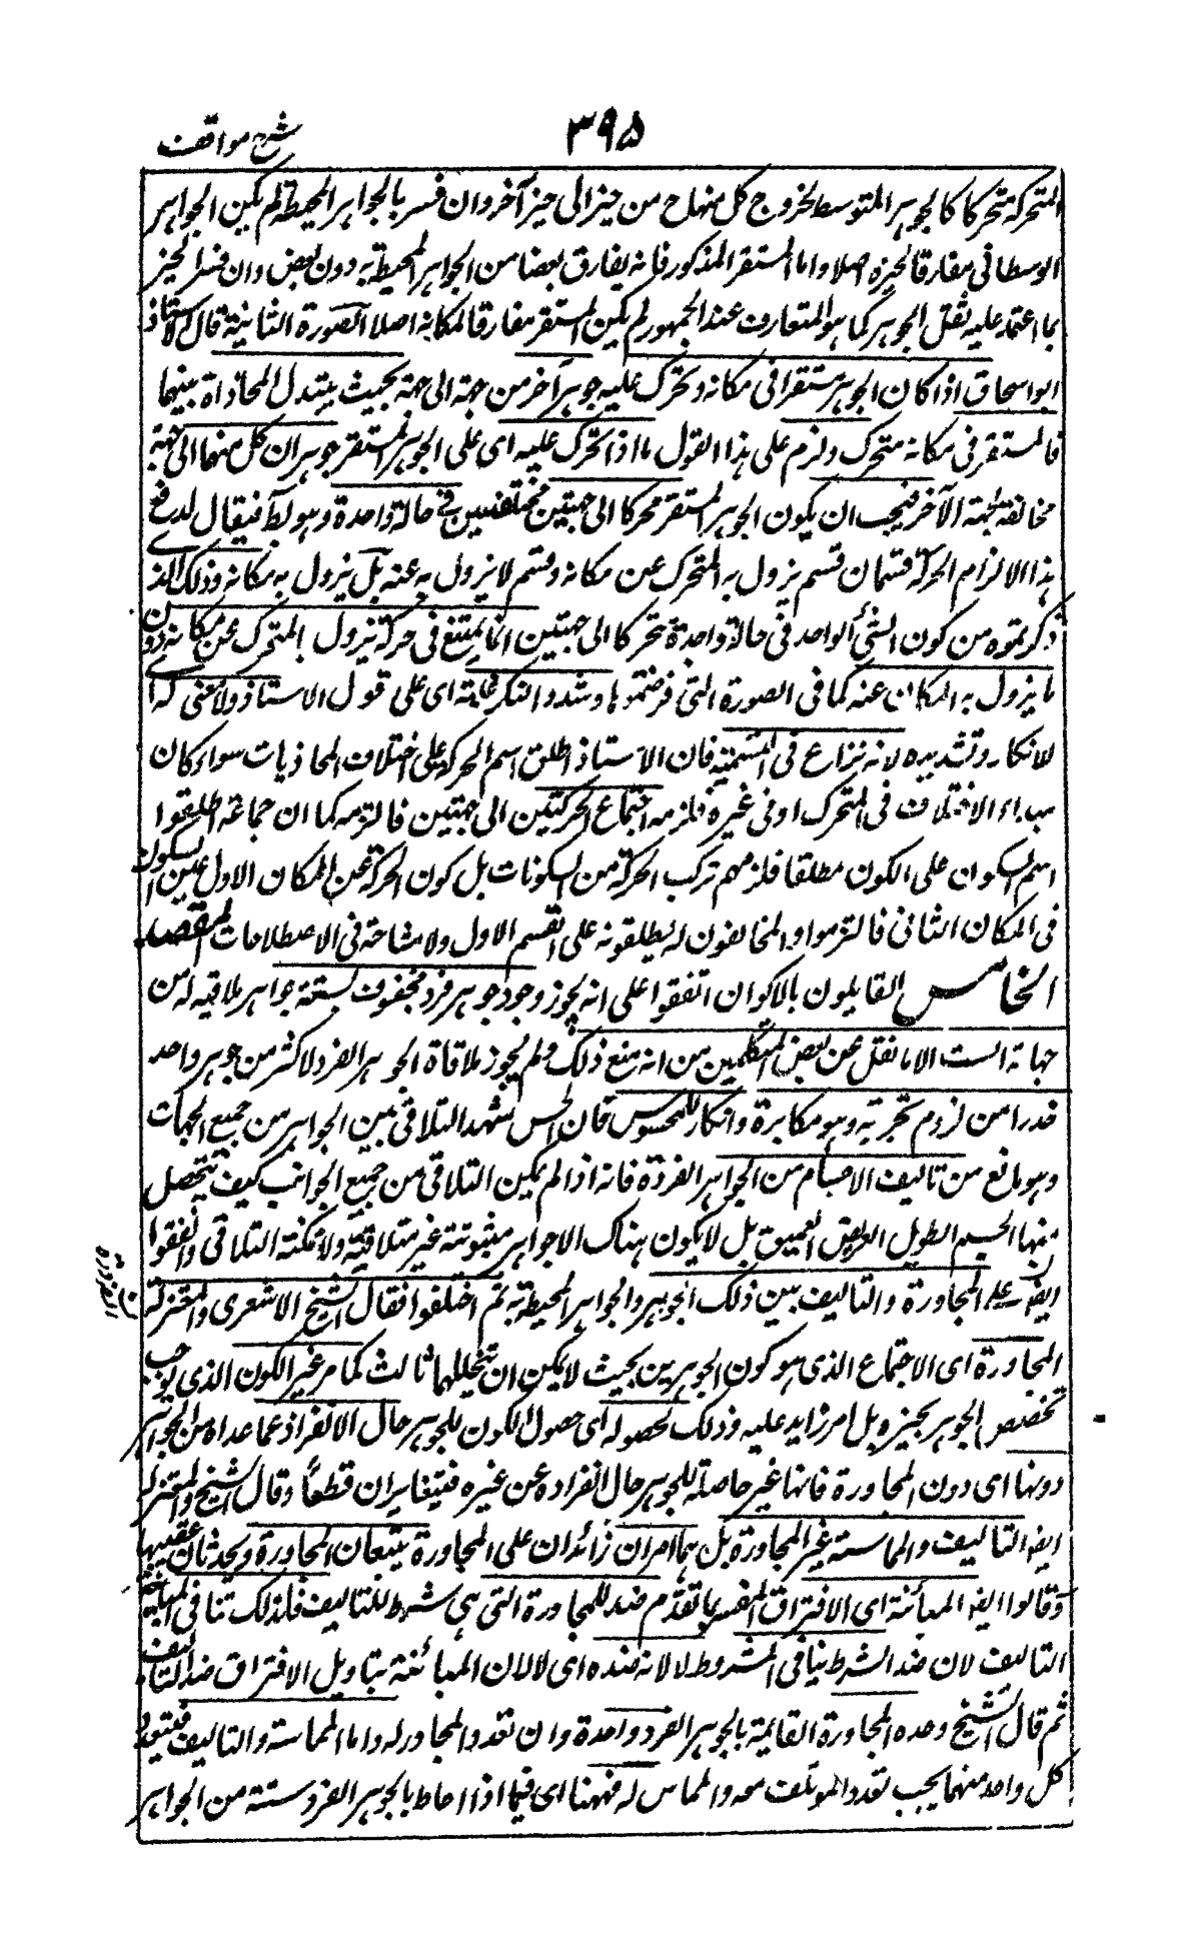 ٣٩٥
شرح مواقف
المتحركة متحركا كالجوهر المتوسط لخروج كل منهما ح من حيز الى حيز آخر وان فسر بالجواهر المحيطة لم يكن الجواهر
الوسطاني مفارقا لحيزه اصلا واما المستقر المذكور فانه يفارق بعضا من الجواهر المحيطة به دون بعض وان فسر الحيز
بما اعتمد عليه ثقل الجوهر كما هو المتعارف عند الجمهور لم يكن المستقر مفارقا لمكانه اصلا الصورة الثانية قال الاستاذ
ابو اسحاق اذا كان الجوهر مستقرا فى مكانه وتحرك عليه جوهر آخر من جهة الى جهة بحيث يتبدل المحاذاة بينهما
فالمستقر فى مكانه متحرك ولزم على هذا القول ما اذا تحرك عليه اى على الجوهر المستقر جوهران كل منهما الى جهة
مخالفة لجهة الآخر فيجب ان يكون الجوهر المستقر محركا الى جهتين مختلفتين فى حالة واحدة وهو بط فيقال لدفع
هذا الالزام الحركة قسمان قسم يزول به المتحرك عن مكانه وقسم لا يزول به عنه بل يزول به مكانه وذلك الذى
ذكرتموه من كون الشئ الواحد فى حالة واحدة متحركا الى جهتين انما يمتنع فى حركة يزول بها المتحرك عن مكانه دون
ما يزول به المكان عنه كما فى الصورة التى فرضتموها وشدد النكير عليه اى على قول الاستاذ ولا معنى له اى
للانكار وتشديده لانه نزاع فى التسمية فان الاستاذ اطلق اسم الحركة على اختلاف المحاذيات سواء كان
مبداء الاختلاف فى المتحرك او فى غيره فلزمه اجتماع الحركتين الى جهتين فالتزمه كما ان جماعة اطلقوا
اسم السكون على الكون مطلقا فلزمهم تركب الحركة من السكونات بل كون الحركة عن المكان الاول عين السكون
فى المكان الثانى فالتزموا والمخالفون له يطلقونه على القسم الاول ولا مشاحة فى الاصطلاحات المقصد
الخامس القايلون بالاكوان اتفقوا على انه يجوز وجود جوهر فرد محفوف بستة جواهر ملاقية له من
جهاته الست الا ما نقل عن بعض المتكلمين من انه منع ذلك ولم يجوز ملاقاة الجوهر الفرد لاكثر من جوهر واحد
حذرا من لزوم تجزيه وهو مكابرة وانكار للمحسوس فان الحس شهد التلاقى بين الجواهر من جميع الجهات
وهو مانع من تاليف الاجسام من الجواهر الفردة فانه اذا لم يكن التلاقى من جميع الجوانب كيف يتحصل
منها الجسم الطويل العريض العميق بل لا يكون هناك الا جواهر مبثوثة غير متلاقية ولا ممكنة التلاقى واتفقوا
ايضا على المجاورة والتاليف بين ذلك الجوهر والجواهر المحيطة به ثم اختلفوا فقال الشيخ الاشعرى والمعتزلة
المجاورة اى الاجتماع الذى هو كون الجوهرين بحيث لا يمكن ان يتخللهما ثالث كما مر غير الكون الذى يوجب
تخصيص الجوهر بحيزه بل امر زايد عليه وذلك لحصوله اى حصول الكون للجوهر حال الانفراد عما عداه من الجواهر
دونها اى دون المجاورة فانها غير حاصلة للجوهر حال انفراده عن غيره فيتغايران قطعا وقال الشيخ والمعتزلة
ايضا التاليف والمماسة غير المجاورة بل هما امران زائدان على المجاورة يتبعان المجاورة ويحدثان عقيبها
وقالوا ايضا المباينة اى الافتراق المفسر بما تقدم ضد للمجاورة التى هى شرط للتاليف فلذلك تنافى المباينة
التاليف لان ضد الشرط ينافى المشروط لا لانه ضده اى لا لان المباينة بتاويل الافتراق ضد التاليف
ثم قال الشيخ وحده المجاورة القائمة بالجوهر الفرد واحدة وان تعدد المجاور له واما المماسة والتاليف فيتعدد
كل واحد منهما بحسب تعدد المؤتلف معه والمماس له فههنا اى فيما اذا احاط بالجوهر الفرد ستة من الجواهر